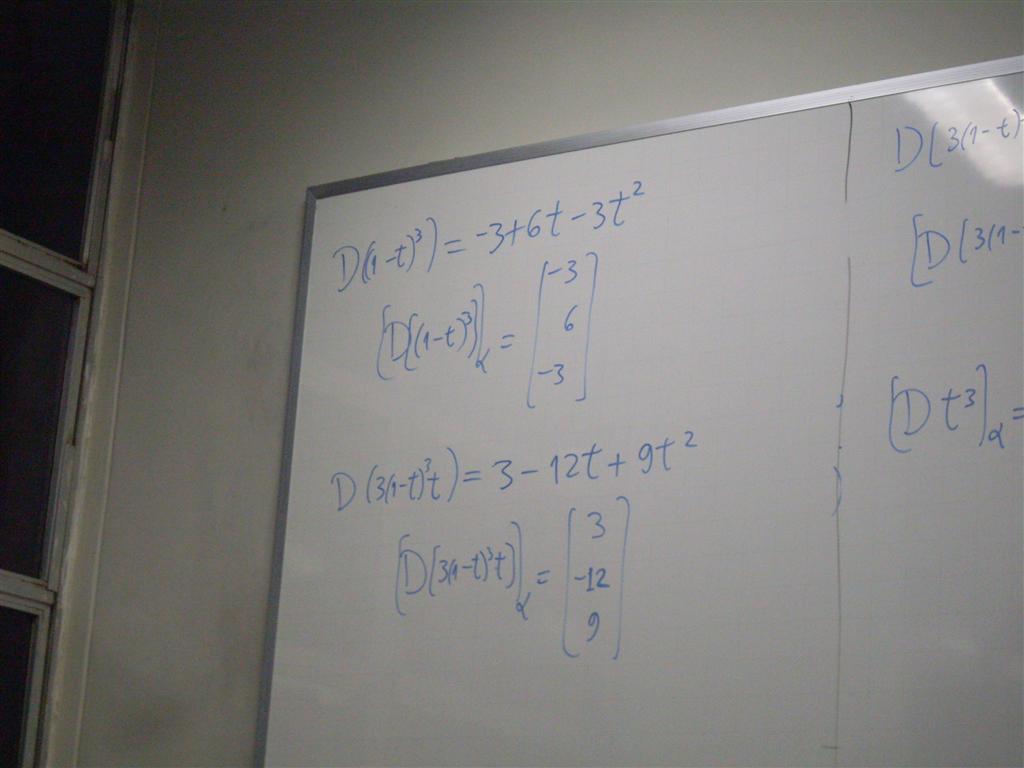 D((1-t)³) = -3+6t-3t²
[D((1-t)³)]α = [-3
6
-3]
D(3(1-t)³t) = 3-12t+9t²
[D(3(1-t)³t)]α = [3
-12
9]
D(3(1-t)
[D(3(1-
[Dt³]α =